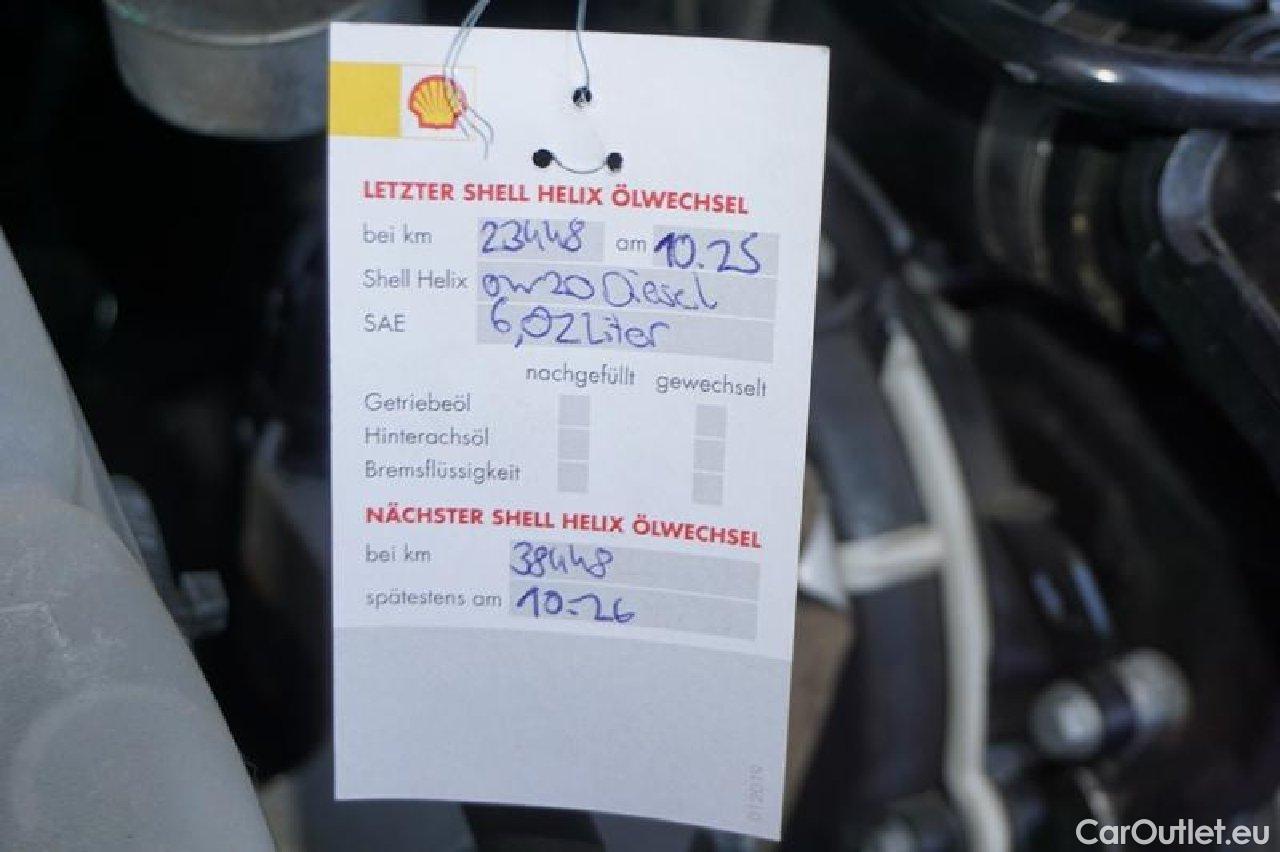 LETZTER SHELL HELIX ÖLWECHSEL
bei km 23448 am 10.25
Shell Helix 0w20 Diesel
SAE 6,02 Liter
nachgefüllt gewechselt
Getriebeöl
Hinterachsöl
Bremsflüssigkeit
NÄCHSTER SHELL HELIX ÖLWECHSEL
bei km 38448
spätestens am 10-26
CarOutlet.eu